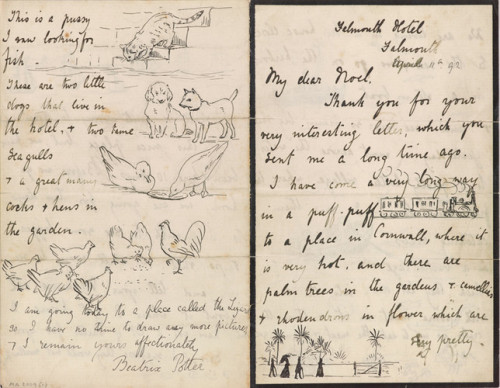 Falmouth Hotel
Falmouth
April 11th 92
My dear Noel.
Thank you for your
very interesting letter, which you
sent me a long time ago.
I have come a very long way
in a puff-puff
to a place in Cornwall, where it
is very hot, and there are
palm trees in the gardens & camellias
& rhododendrons in flower which are
very pretty.
This is a pussy
I saw looking for
fish.
These are two little
dogs that live in
the hotel, & two tame
Sea gulls
& a great many
cocks & hens in
the garden.
I am going today to a place called the Lizard
so I have no time to draw any more pictures
& I remain yours affectionately
Beatrix Potter